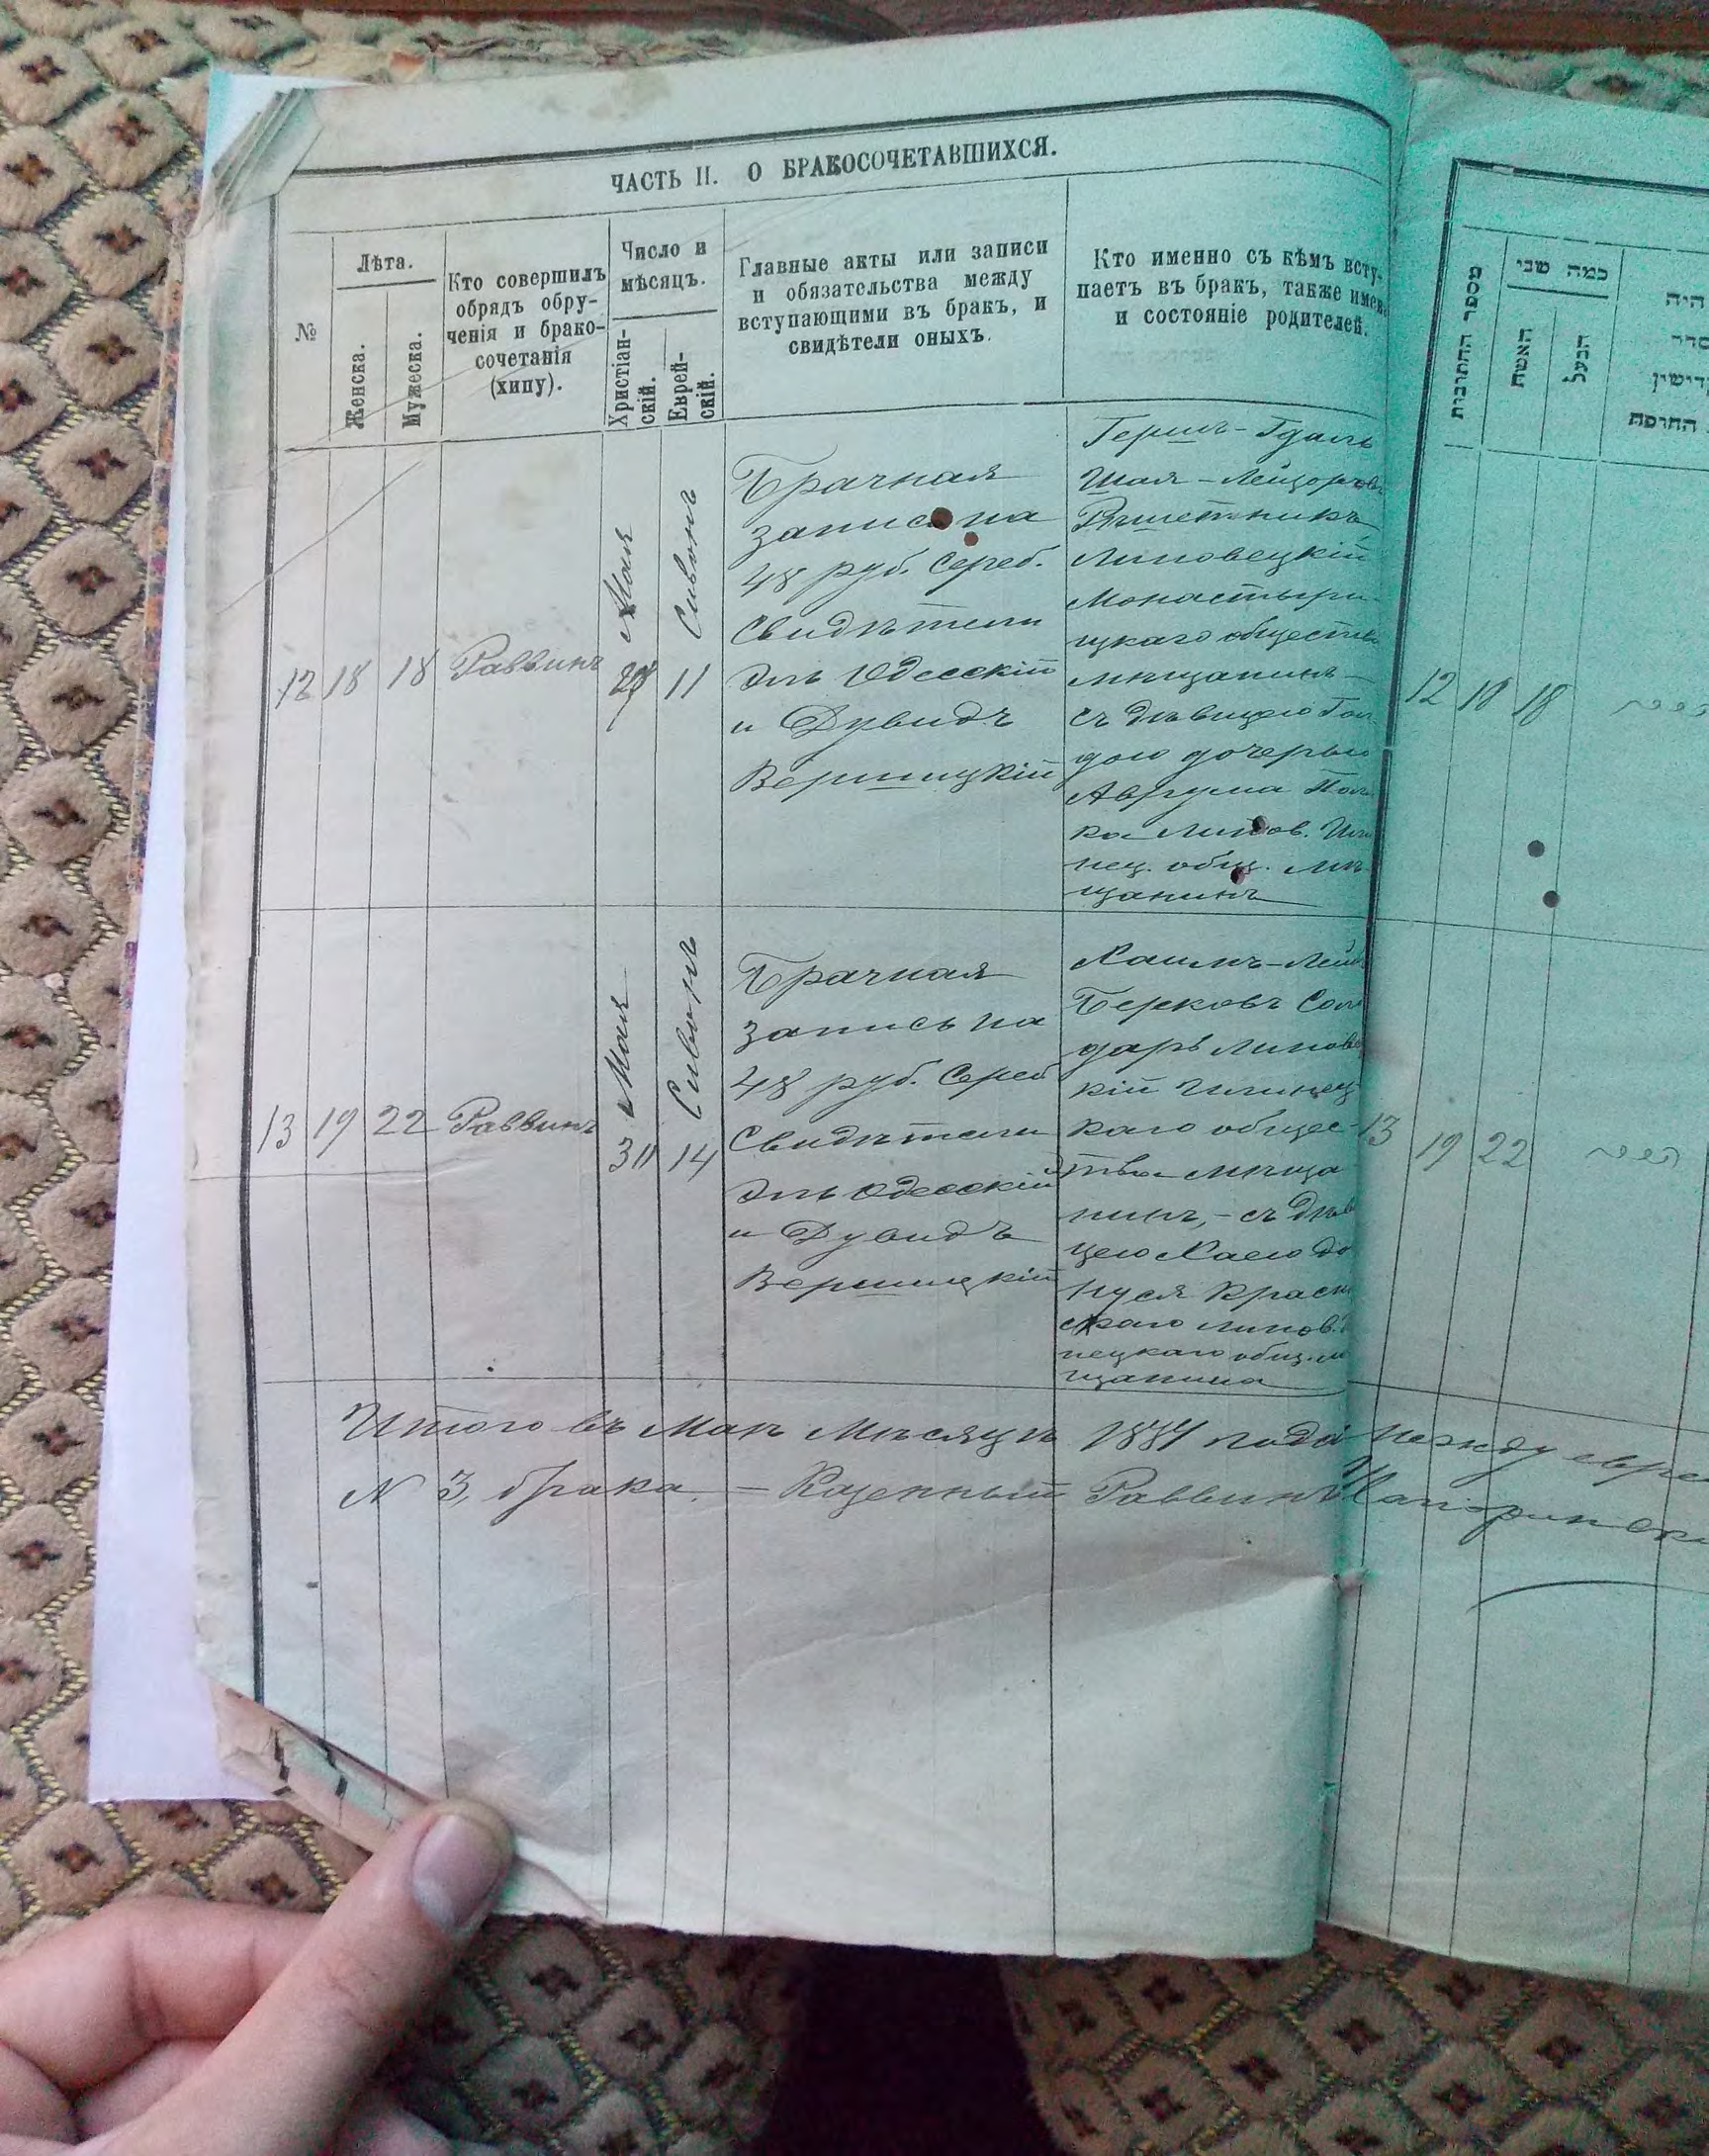 ЧАСТЬ II. О БРАКОСОЧЕТАВШИХСЯ.
№
Лѣта.
Женска.
Мужеска.
Кто совершилъ
обрядъ обру-
ченія и брако-
сочетанія
(хипу).
Число и
мѣсяцъ.
Христіан-
скій.
Еврей-
скій.
Главные акты или записи
и обязательства между
вступающими въ бракъ, и
свидѣтели оныхъ.
Кто именно съ кѣмъ всту-
паетъ въ бракъ, также имена
и состояніе родителей.
12
18
18
Раввинъ
Мая
28
Сивонъ
11
Брачная
запись на
48 руб. Сереб.
Свидѣтели
Эль Одесскій
и Дувидъ
Вершицкій
Гершъ-
Шая-Лейзоровъ
Липовецкій
Монастыри-
щкаго общества
мѣщанинъ-
съ дѣвицею Гол
дою дочерью
Аврума
ка Липов.
нец. общ. мѣ
щанинъ
13
19
22
Раввинъ
Мая
31
Сивонъ
14
Брачная
запись на
48 руб. Сереб
Свидѣтели
Эль Одесскій
и Дувидъ
Вершицкій
Хаимъ-Лейб
Берковъ Сол
даръ Липовец
кій Илинец
каго общес-
тва мѣща
нинъ,- съ дѣв
цею Хаею до
Нуся Красн
скаго Липов.
нецкаго общ. м
щанина
Итого въ Маѣ Мѣсяцѣ 1884 года между евре
N 3, брака. - Казенный Раввинъ
מספר החתונות
כמה שני
האשה
הבעל
היה
סדר
קדישין
החופה
12
18
18
13
19
22